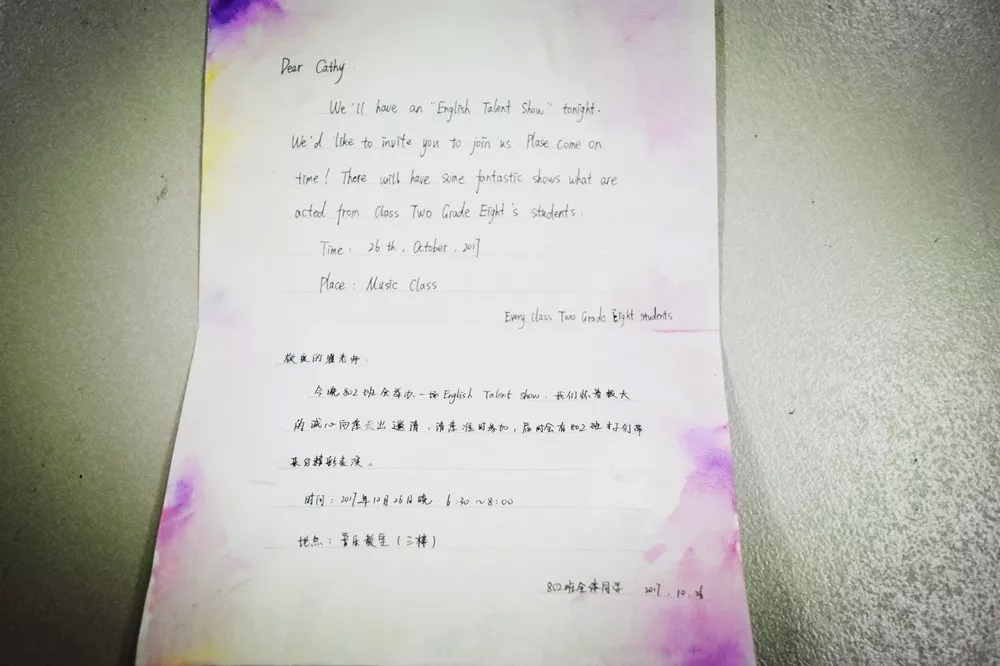 Dear Cathy.
We'll have an "English Talent Show" tonight.
We'd like to invite you to join us. Plase come on
time! There will have some fantastic shows what are
acted from Class Two Grade Eight's students.
Time: 26th, October, 2017
Place: Music Class
Every Class Two Grade Eight students
敬爱的崔老师:
今晚802班会举办一场English Talent show,我们怀着极大
的诚心向您发出邀请,请您准时参加,届时会有802班才子们带
来的精彩表演。
时间:2017年10月26日晚 6:30~8:00
地点:音乐教室(三楼)
802班全体同学 2017.10.26